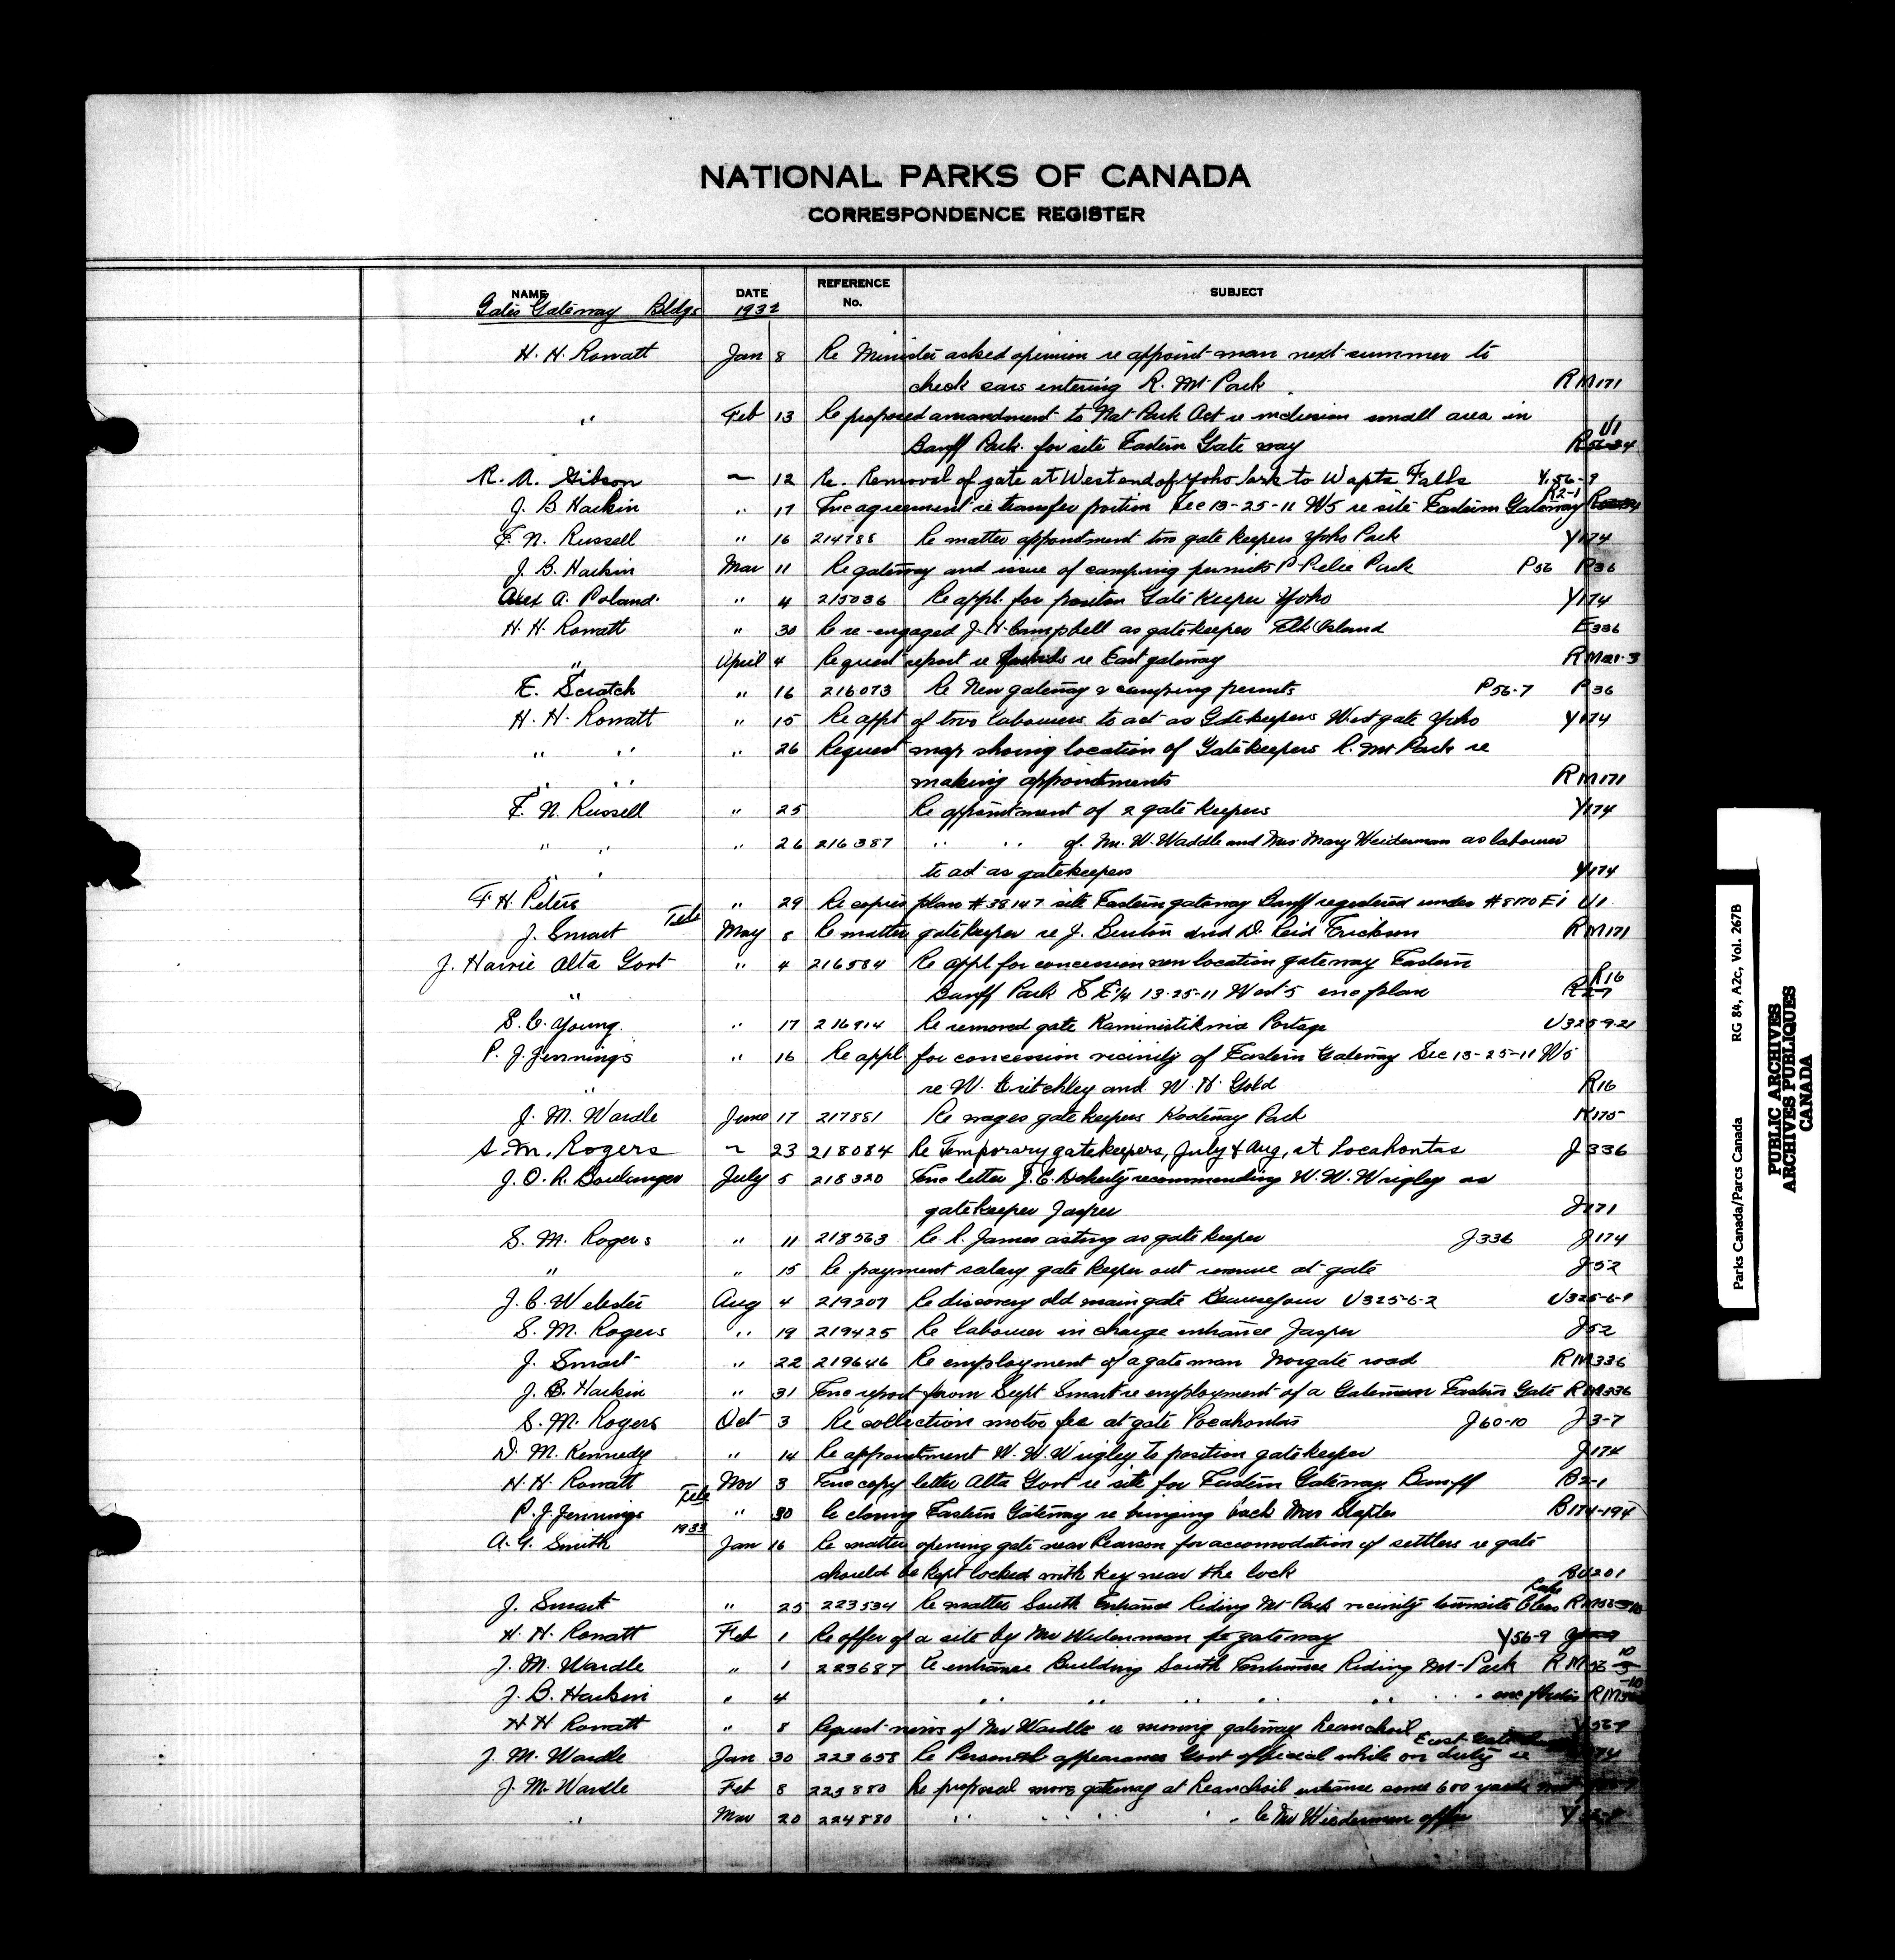 NATIONAL PARKS OF CANADA
CORRESPONDENCE REGISTER
NAME DATE REFERENCE No. SUBJECT
Gates Gateway Bldgs 1932
H. H. Rowatt Jan 8 Re Minister asked opinion re appoint man next summer to
check cars entering R. Mt. Park RM171
" Feb 13 Re proposed amandment to Nat Park Act re inclusion small area in
Banff Park for site Eastern Gate way U1
R. A. Gibson " 12 Re. Removal of gate at West end of Yoho Park to Wapta Falls Y.56-9
J. B Harkin " 17 Enc agreement re transfer portion Sec 13-25-11 W5 re site Eastern Gateway R2-1
F. N. Russell " 16 214788 Re matter appointment two gate keepers Yoho Park Y174
J. B. Harkin Mar 11 Re gateway and issue of camping permits P-Pelee Park P56 P36
Alex A. Poland. " 4 215036 Re appl. for position Gate Keeper Yoho Y174
H. H. Rowatt " 30 Re re-engaged J. H. Campbell as gatekeeper Elk Island E336
" April 4 Request report re re East gateway RM21-3
E. Scratch " 16 216073 Re New gateway & camping permits P56-7 P36
H. H. Rowatt " 15 Re appt of two labourers to act as Gatekeepers West gate Yoho Y174
" " " 26 Request map showing location of Gatekeepers R. Mt Park re
" " making appointments RM171
F. N. Russell " 25 Re appointment of 2 gate keepers Y174
" " 26 216387 " " of Mr. W. Waddle and Mrs Mary Weiderman as labourer
" " to act as gatekeepers Y174
F H. Peters " 29 Re copies plan #38147 site Eastern gateway Banff registered under #8170 EI U1
J. Smart Tele May 8 Re matter gatekeeper re J. Burton and D. Reid Erickson RM171
J. Harvie Alta Govt " 4 216584 Re appl for concession new location gateway Eastern
" Banff Park S E 1/4 13-25-11 West 5 enc plan R2-7 R16
S. C. Young. " 17 216914 Re removed gate Kaministikwia Portage U325-9-21
P. J. Jennings " 16 Re appl for concession vicinity of Eastern Gateway Sec 13-25-11 W5
" re W. Critchley and W. H. Gold R16
J. M. Wardle June 17 217881 Re wages gate keepers Kootenay Park K175
S. M. Rogers " 23 218084 Re Temporary gatekeepers, July & Aug, at Pocahontas J336
J. O. R. Boulanger July 5 218320 Enc letter J. C. Doherty recommending W. W. Wrigley as
gatekeeper Jasper J171
S. M. Rogers " 11 218563 Re R. James acting as gate keeper J336 J174
" " 15 Re payment salary gate keeper out revenue at gate J52
J. C. Webster Aug 4 219207 Re discovery old main gate Beausejour U325-6-2 U325-6-9
S. M. Rogers " 19 219425 Re labourer in charge entrance Jasper J52
J. Smart " 22 219646 Re employment of a gate man Norgate road RM336
J. B. Harkin " 31 Enc report from Supt Smart re employment of a Gateman Eastern Gate RM336
S. M. Rogers Oct 3 Re collection motor fee at gate Pocahontas J60-10 J3-7
D. M. Kennedy " 14 Re appointment W. W. Wrigley to position gatekeeper J174
H. H. Rowatt Nov 3 Enc copy letter Alta Govt re site for Eastern Gateway. Banff B2-1
P. J. Jennings Tele " 30 Re closing Eastern Gateway re bringing back Mrs Staples B174-194
A. G. Smith 1933 Jan 16 Re matter opening gate near Pearson for accomodation of settlers re gate
should be kept locked with key near the lock
J. Smart " 25 223534 Re matter South Entrance Riding Mt Park vicinity townsite Clear Lake
H. H. Rowatt Feb 1 Re offer of a site by Mr Wiedenman for gateway Y56-9
J. M. Wardle " 1 223687 Re entrance Building South Entrance Riding Mt-Park RM56-10
J. B. Harkin " 4 " " " " " " enc photos
H H Rowatt " 8 Request views of Mr Wardle re moving gateway Leanchoil Y56-9
J. M. Wardle Jan 30 223658 Re Personal appearance Govt official while on duty re East Gate
J. M. Wardle Feb 8 223880 Re proposal move gateway at Leanchoil entrance some 600 yards
" Mar 20 224880 " " " " " Re Mr Wiedenman offer
Parks Canada/Parcs Canada RG 84, A2c, Vol. 267B
PUBLIC ARCHIVES
ARCHIVES PUBLIQUES
CANADA